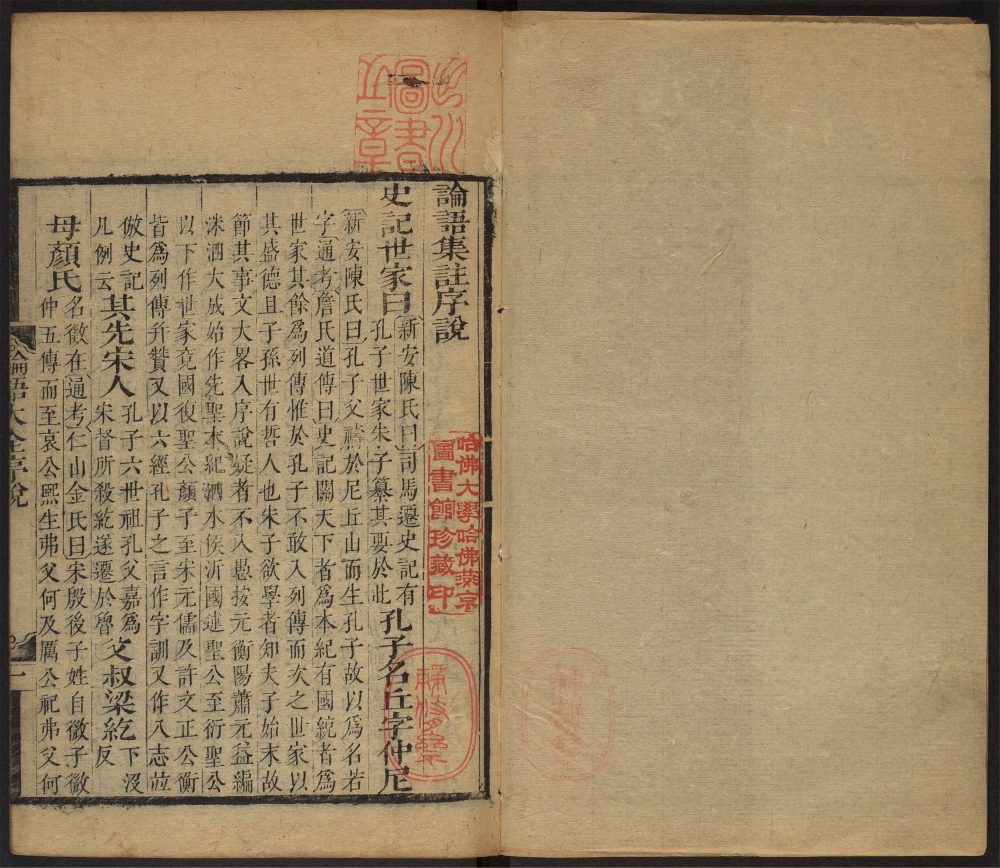 論語集註序說
史記世家曰新安陳氏曰司馬遷史記有孔子世家朱子纂其要於此孔子名丘字仲尼
新安陳氏曰孔子父禱於尼丘山而生孔子故以爲名若
字通考詹氏道傳曰史記關天下者爲本紀有國統者爲
世家其餘爲列傳惟於孔子不敢入列傳而次之世家以
其盛德且子孫世有哲人也朱子欲學者知夫子始末故
節其事文大畧入序說疑者不入愚按元衡陽蕭元益編
洙泗大成始作先聖本紀泗水侯沂國述聖公至衍聖公
以下作世家兗國復聖公顏子至宋元儒及許文正公衡
皆爲列傳幷贊又以六經孔子之言作字訓又作入志並
倣史記
凡例云其先宋人孔子六世祖孔父嘉爲宋督所殺紇遂遷於魯父叔梁紇下沒反
母顏氏名徵在通考仁山金氏曰宋殷後子姓自微子微
仲五傳而至哀公熙生弗父何及厲公祀弗父何
論語大全序說
一
圖書
章
哈佛大學哈佛燕京
圖書館珍藏印